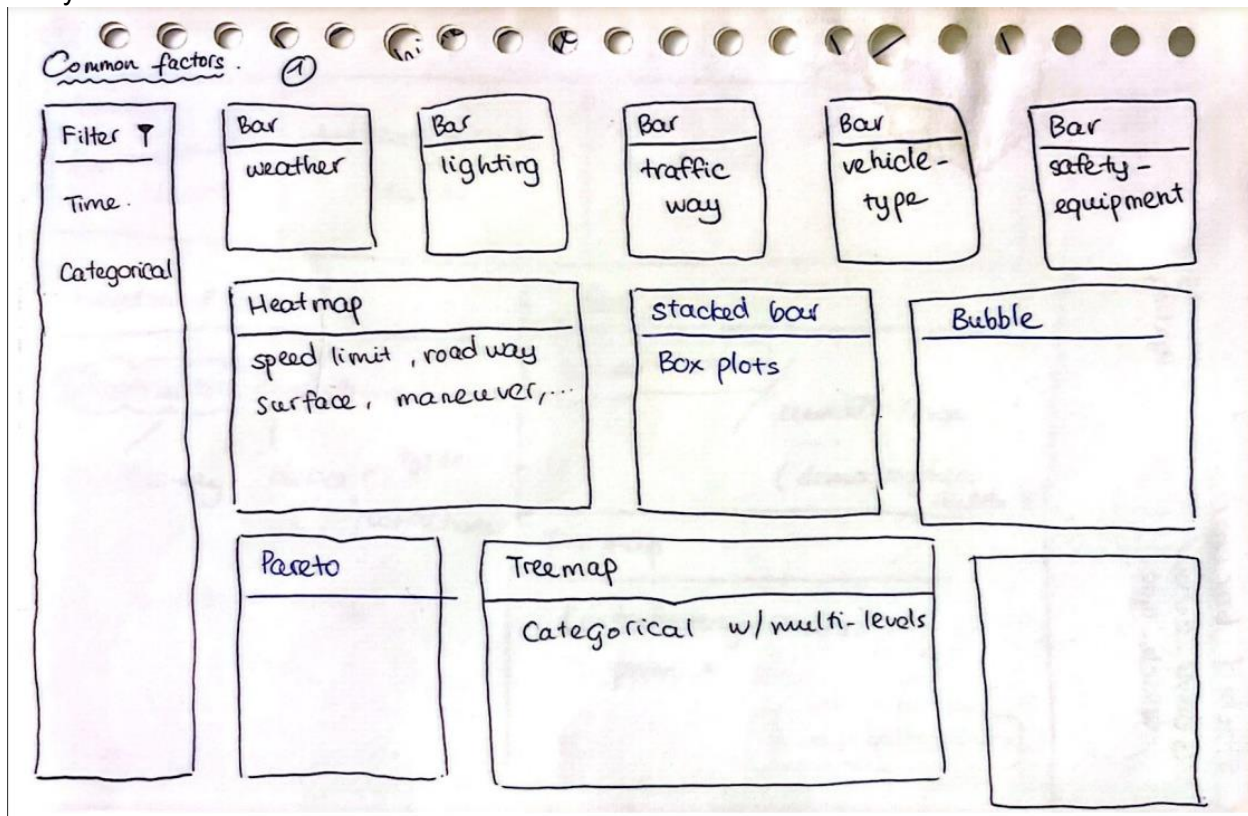 Common factors. 1
Filter
Time.
Categorical
Bar
weather
Bar
lighting
Bar
traffic
way
Bar
vehicle-
type
Bar
safety-
equipment
Heatmap
speed limit, road way
surface, maneuver,...
stacked bar
Box plots
Bubble
Pareto
Treemap
Categorical w/multi-levels